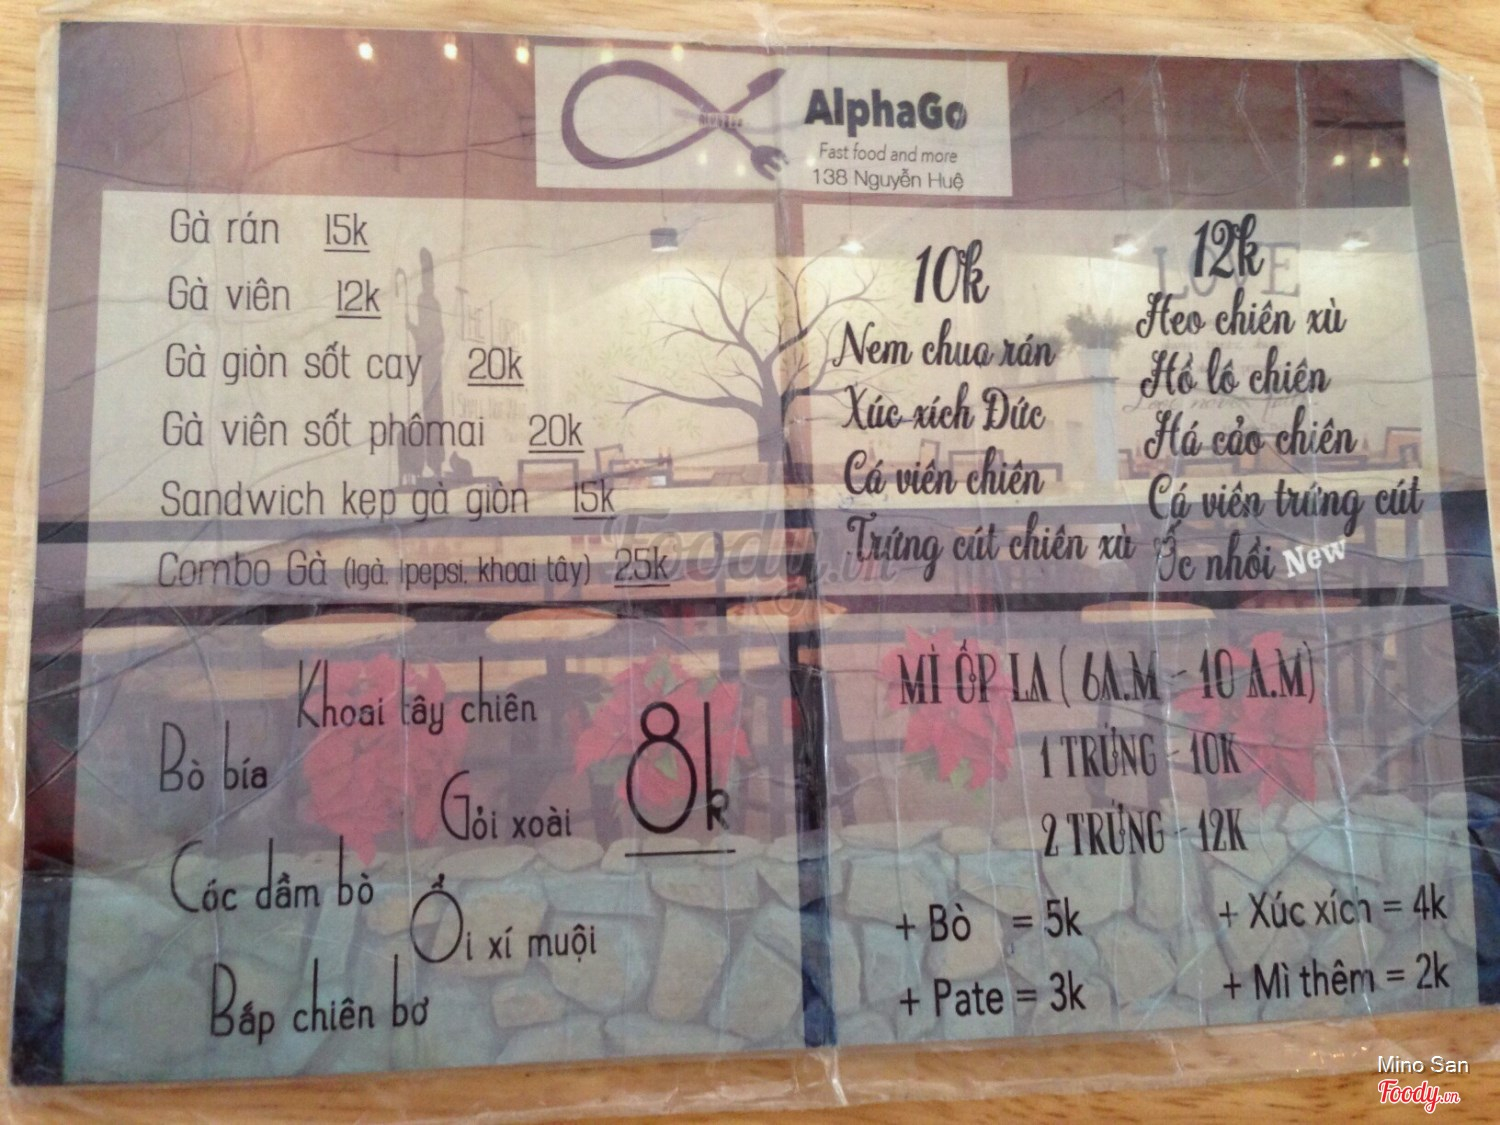 AlphaGo
Fast food and more
138 Nguyễn Huệ
Gà rán 15k
Gà viên 12k
Gà giòn sốt cay 20k
Gà viên sốt phômai 20k
Sandwich kẹp gà giòn 15k
Combo Gà (1gà, 1pepsi, khoai tây) 25k
10k
Nem chua rán
Xúc xích Đức
Cá viên chiên
Trứng cút chiên xù
LOVE
12k
Heo chiên xù
Hồ lô chiên
Há cảo chiên
Cá viên trứng cút
Ốc nhồi New
Khoai tây chiên
Bò bía
Gỏi xoài
8k
Cóc dầm bò
Ổi xí muội
Bắp chiên bơ
MÌ ỐP LA ( 6A.M - 10 A.M)
1 TRỨNG - 10K
2 TRỨNG - 12K
+ Bò = 5k
+ Xúc xích = 4k
+ Pate = 3k
+ Mì thêm = 2k
Foody.vn
Mino San
Foody.vn